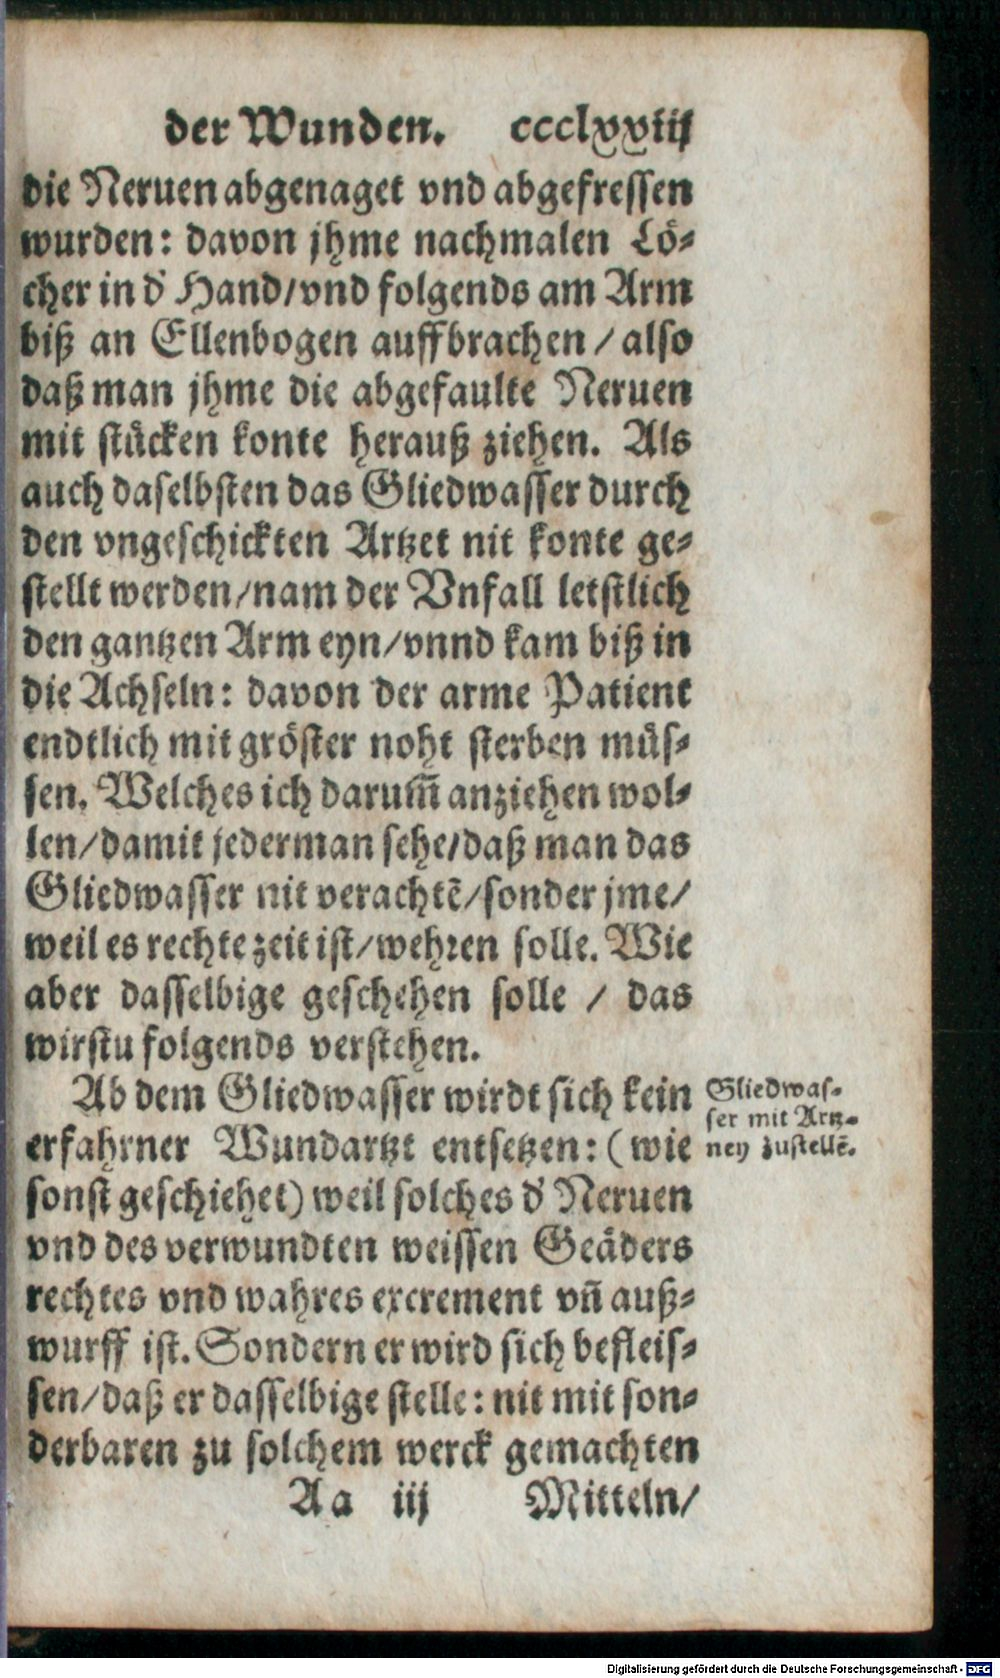 der Wunden. ccclxxiij
die Neruen abgenaget vnd abgefressen
wurden: davon jhme nachmalen Lö-
cher in d' Hand/vnd folgends am Arm
biß an Ellenbogen auffbrachen / also
daß man jhme die abgefaulte Neruen
mit stücken konte herauß ziehen. Als
auch daselbsten das Gliedwasser durch
den vngeschickten Artzet nit konte ge-
stellt werden/nam der Vnfall letstlich
den gantzen Arm eyn/vnnd kam biß in
die Achseln: davon der arme Patient
endtlich mit gröster noht sterben müs-
sen. Welches ich darum̃ anziehen wol-
len/damit jederman sehe/daß man das
Gliedwasser nit verachtẽ/sonder jme/
weil es rechte zeit ist/wehren solle. Wie
aber dasselbige geschehen solle / das
wirstu folgends verstehen.
Ab dem Gliedwasser wirdt sich kein
erfahrner Wundartzt entsetzen: (wie
sonst geschiehet) weil solches d' Neruen
vnd des verwundten weissen Geäders
rechtes vnd wahres excrement vñ auß-
wurff ist. Sondern er wird sich befleis-
sen/daß er dasselbige stelle: nit mit son-
derbaren zu solchem werck gemachten
Aa iij Mitteln/
Gliedwas-
ser mit Artz-
ney zustellẽ.
Digitalisierung gefördert durch die Deutsche Forschungsgemeinschaft - DFG